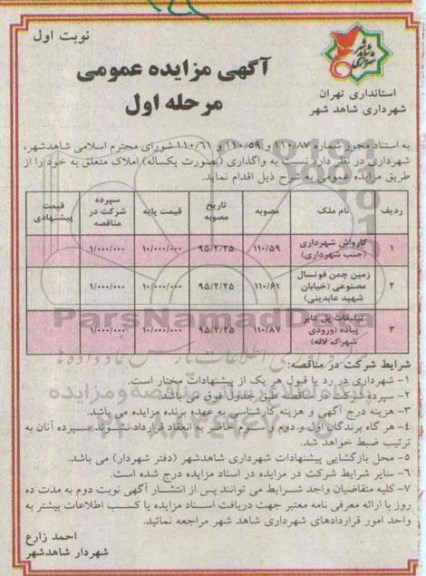 نوبت اول
استانداری تهران
شهرداری شاهد شهر
آگهی مزایده عمومی
مرحله اول
به استناد مجوز شماره ۱۱۰/۸۷ و ۱۱۰/۵۹ و ۱۱۰/۶۱ شورای محترم اسلامی شاهدشهر،
شهرداری در نظر دارد نسبت به واگذاری (بصورت یکساله) املاک متعلق به خود را از
طریق مزایده عمومی به شرح ذیل اقدام نماید.
ردیف نام ملک مصوبه تاریخ مصوبه قیمت پایه سپرده شرکت در مناقصه قیمت پیشنهادی
۱ کارواش شهرداری (جنب شهرداری) ۱۱۰/۵۹ ۹۵/۲/۲۵ ۱۰/۰۰۰/۰۰۰ ۱/۰۰۰/۰۰۰
۲ زمین چمن فوتسال مصنوعی (خیابان شهید عابدینی) ۱۱۰/۶۱ ۹۵/۲/۲۵ ۱۰/۰۰۰/۰۰۰ ۱/۰۰۰/۰۰۰
۳ تبلیغات پل عابر پیاده (ورودی شهرک لاله) ۱۱۰/۸۷ ۹۵/۲/۲۵ ۱۰/۰۰۰/۰۰۰ ۱/۰۰۰/۰۰۰
ParsNamadData
شرایط شرکت در مناقصه:
۱- شهرداری در رد یا قبول هر یک از پیشنهادات مختار است.
۲- سپرده شرکت در مناقصه طبق جدول فوق می باشد.
۳- هزینه درج آگهی و هزینه کارشناسی به عهده برنده مزایده می باشد.
۴- هر گاه برندگان اول و دوم و سوم حاضر به انعقاد قرارداد نشوند سپرده آنان به
ترتیب ضبط خواهد شد.
۵- محل بازگشایی پیشنهادات شهرداری شاهدشهر (دفتر شهردار) می باشد.
۶- سایر شرایط شرکت در مزایده در اسناد مزایده درج شده است.
۷- کلیه متقاضیان واجد شرایط می توانند پس از انتشار آگهی نوبت دوم به مدت ده
روز با ارائه معرفی نامه معتبر جهت دریافت اسناد مزایده یا کسب اطلاعات بیشتر به
واحد امور قراردادهای شهرداری شاهد شهر مراجعه نمائید.
احمد زارع
شهردار شاهدشهر